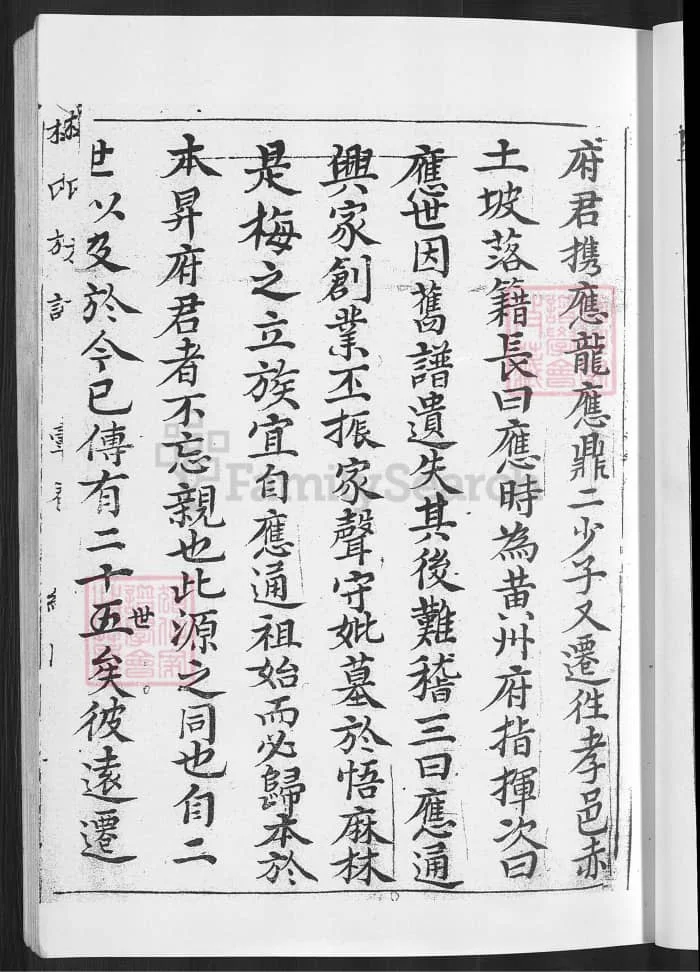 府君携應龍應鼎二少子又遷徃孝邑赤
土坡落籍長曰應時為黄州府指揮次曰
應世因舊譜遺失其後難稽三曰應通
興家創業丕振家聲守妣墓於悟麻林
是梅之立族宜自應通祖始而必歸本於
本昇府君者不忘親也此源之同也自二
世以及於今已傳有二十五世矣彼遠遷
FamilySearch